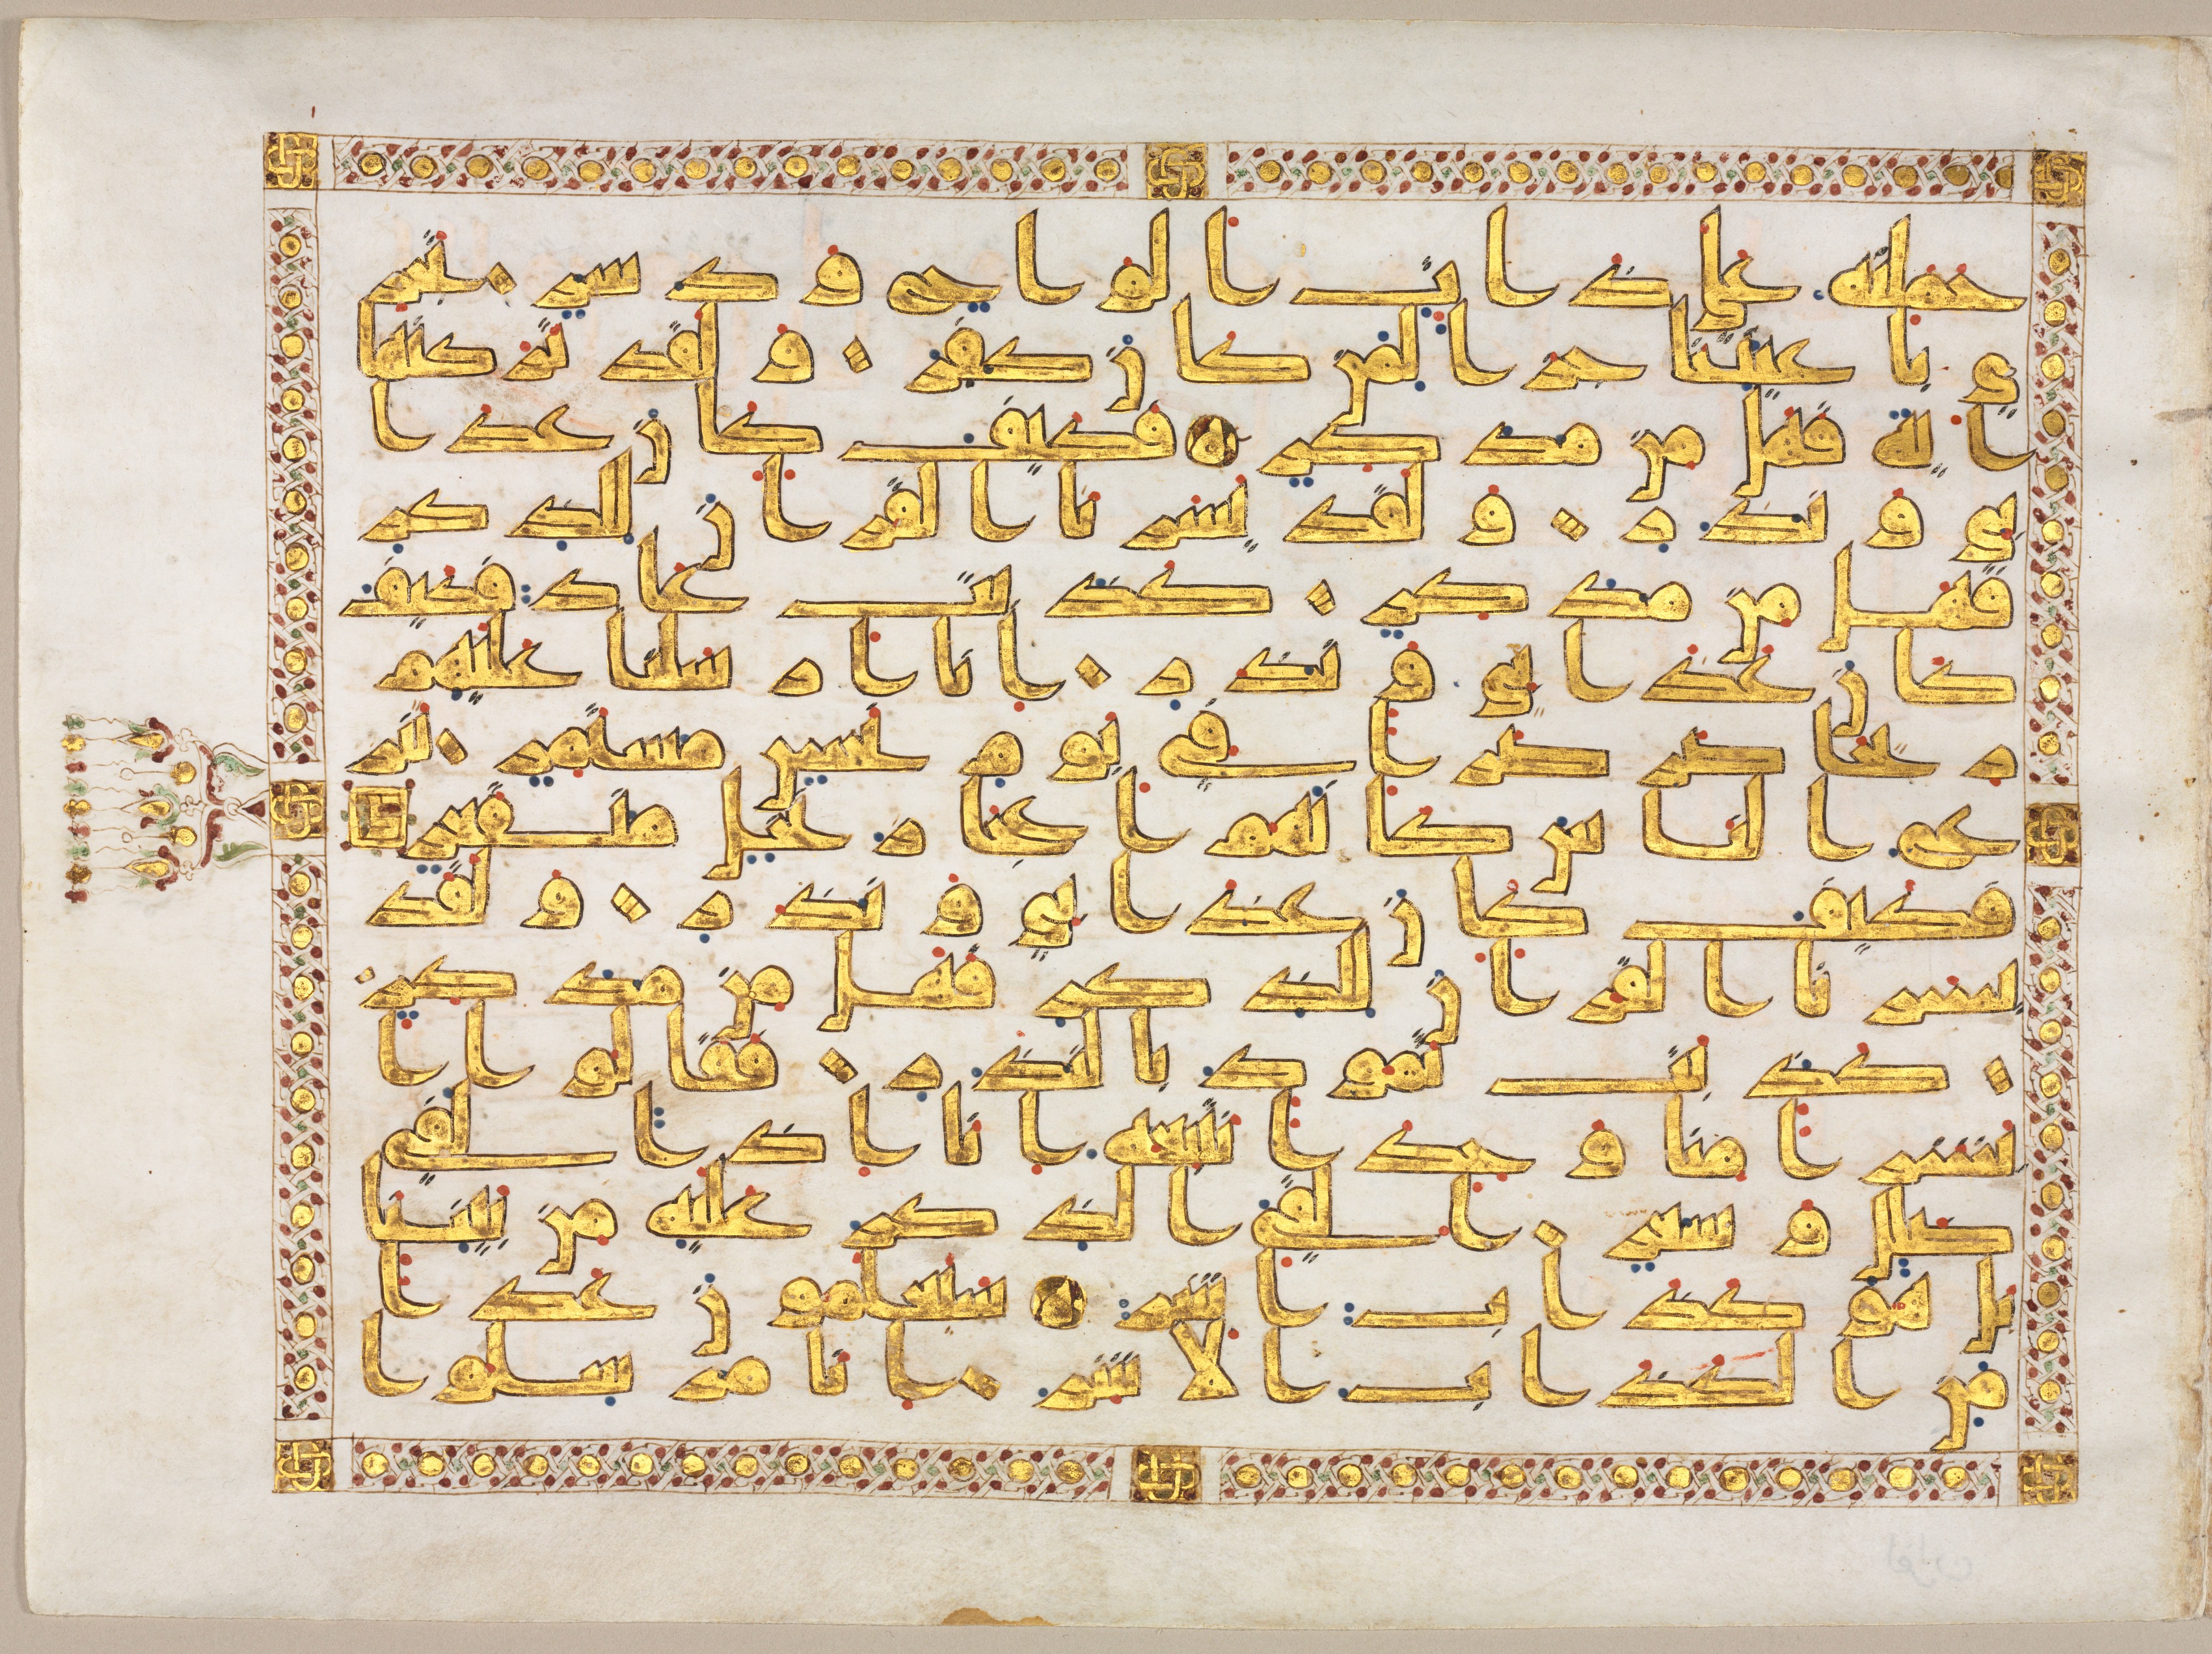 حملنه على ذات الواح ودسر تجر
ي باعيننا جزا لمن كان كفر ولقد تركنها
اية فهل من مدكر فكيف كان عذا
بي ونذر ولقد يسرنا القران للذكر
فهل من مدكر كذبت عاد فكيف
كان عذابي ونذر انا ارسلنا عليهم
ريحا صرصرا في يوم نحس مستمر تنز
ع الناس كانهم اعجاز نخل منقعر
فكيف كان عذابي ونذر ولقد
يسرنا القران للذكر فهل من مدكر
كذبت ثمود بالنذر فقالوا ا
بشرا منا وحدا نتبعه انا اذا لفي
ضلل وسعر القي الذكر عليه من بيننا
بل هو كذاب اشر سيعلمون غدا
من الكذاب الاشر انا مرسلوا